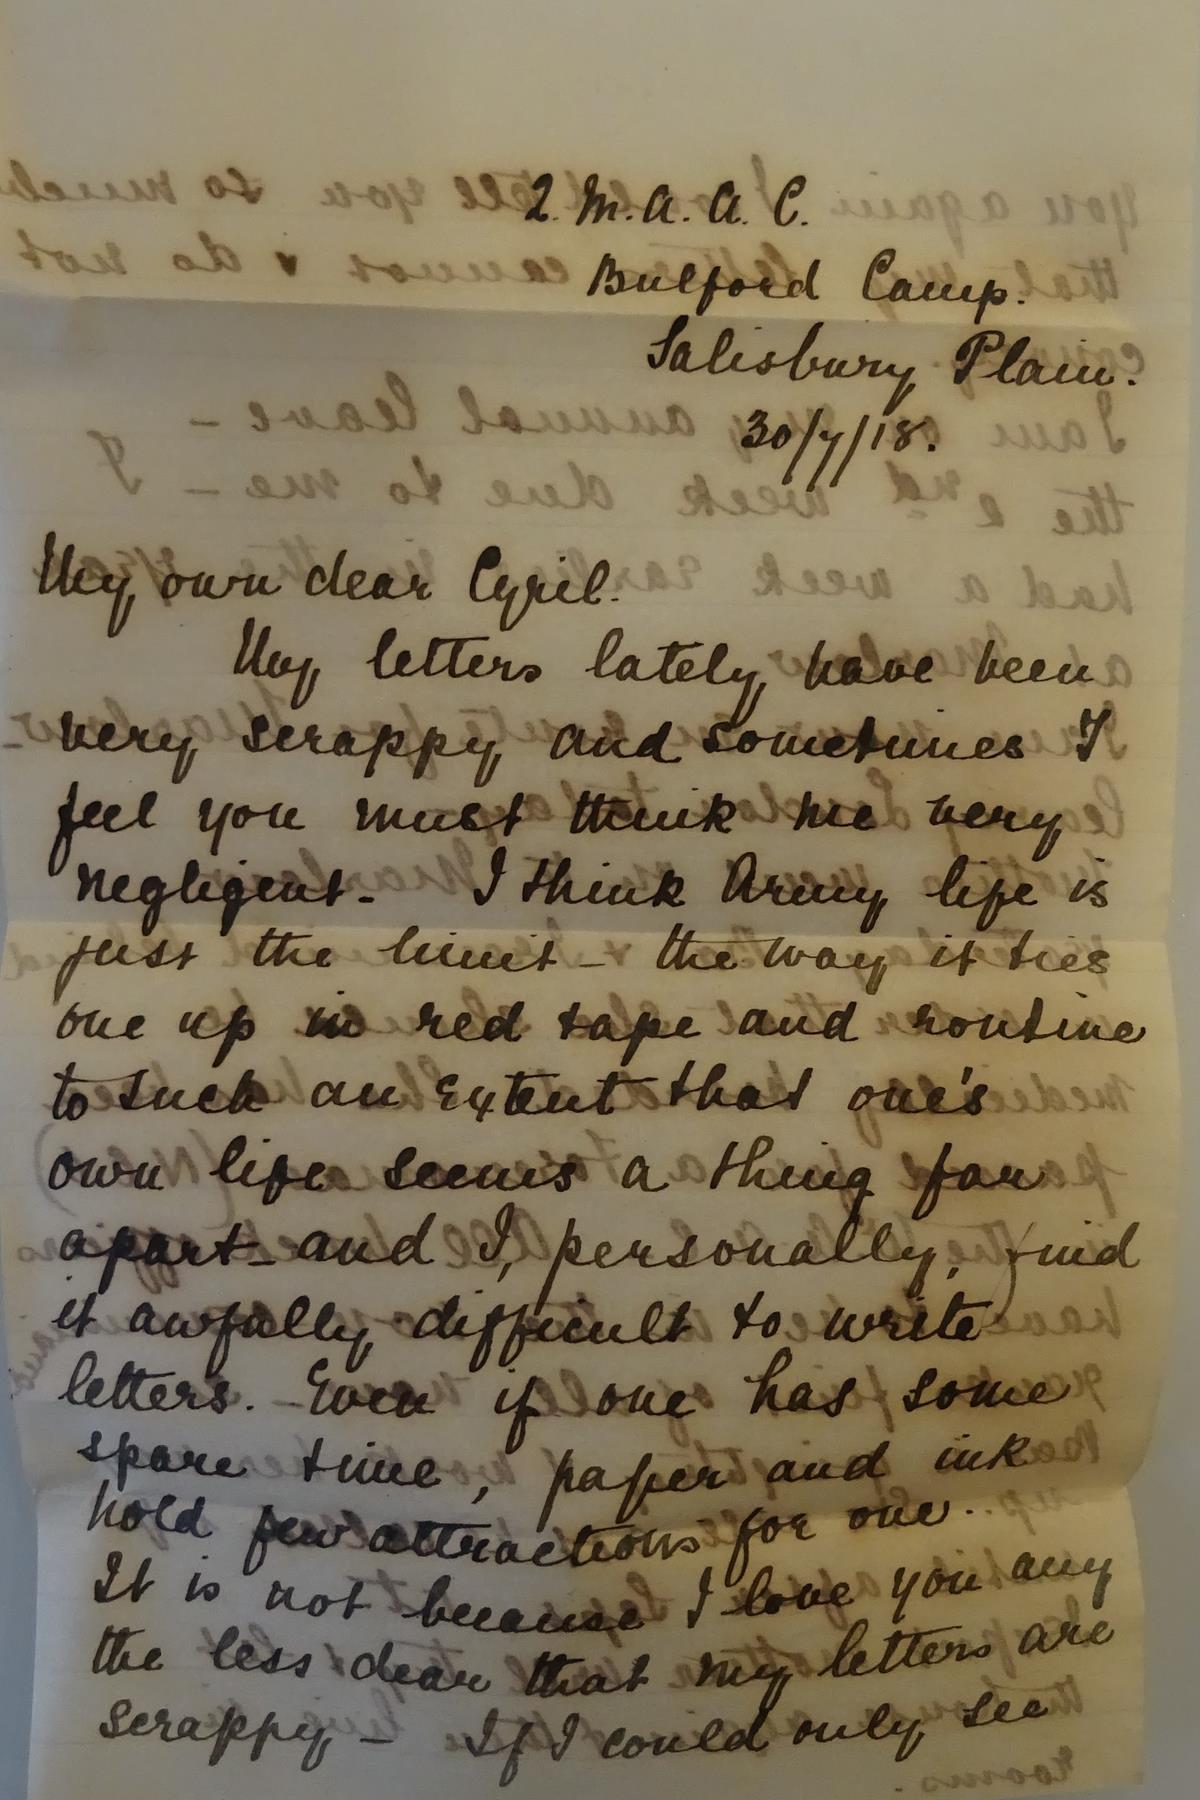 2. M. A. A. C.
Bulford Camp.
Salisbury Plain.
30/7/18.
My own dear Cyril.
My letters lately have been
very scrappy and sometimes I
feel you must think me very
negligent - I think Army life is
just the limit - the way it ties
one up in red tape and routine
to such an extent that one's
own life seems a thing far
apart - and I, personally, find
it awfully difficult to write
letters. - Even if one has some
spare time, paper and ink
hold few attractions for one.
It is not because I love you any
the less dear that my letters are
scrappy - If I could only see